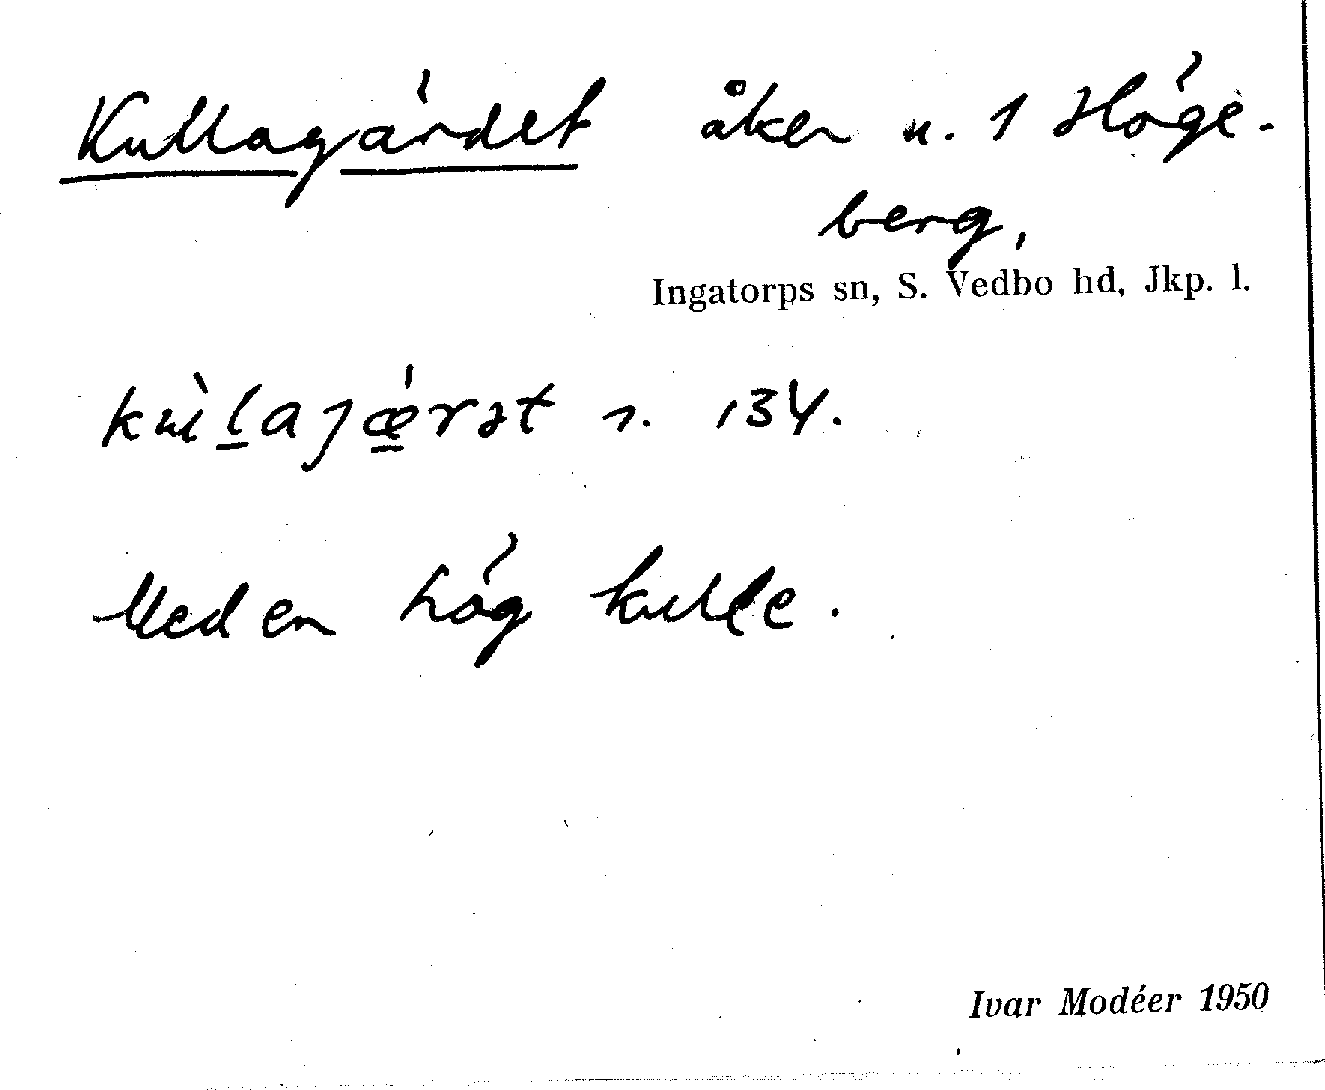 Kullagärdet åker n. 1 Höge-
berg,
Ingatorps sn, S. Vedbo hd, Jkp. l.
kùl̲ajǽ̲rət n. 134.
Med en hög kulle.
Ivar Modéer 1950